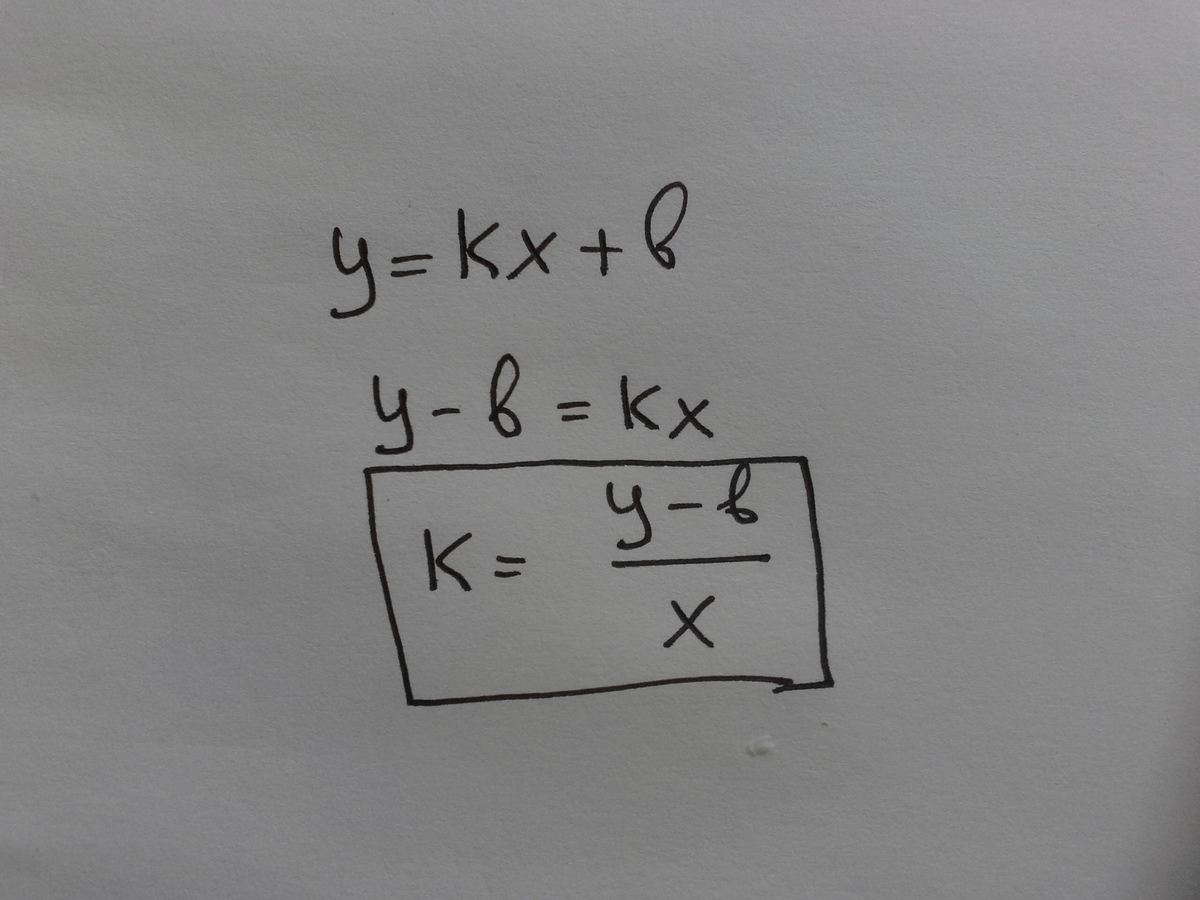 y = kx + b
y - b = kx
k = \frac{y - b}{x}